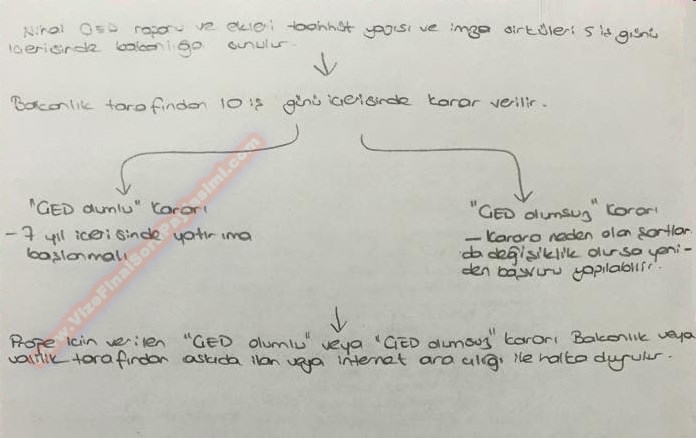 Nihai ÇED raporu ve ekleri taahhüt yazısı ve imza sirküleri 5 iş günü
içerisinde bakanlığa sunulur.
Bakanlık tarafından 10 iş günü içerisinde karar verilir.
"ÇED olumlu" kararı
- 7 yıl içerisinde yatırıma
başlanmalı
"ÇED olumsuz" kararı
- Karara neden olan şartlar
da değişiklik olursa yeni-
den başvuru yapılabilir.
Proje için verilen "ÇED olumlu" veya "ÇED olumsuz" kararı Bakanlık veya
valilik tarafından askıda ilan veya internet aracılığı ile halka duyurulur.
www.VizeFinalSoruPaylasimi.com